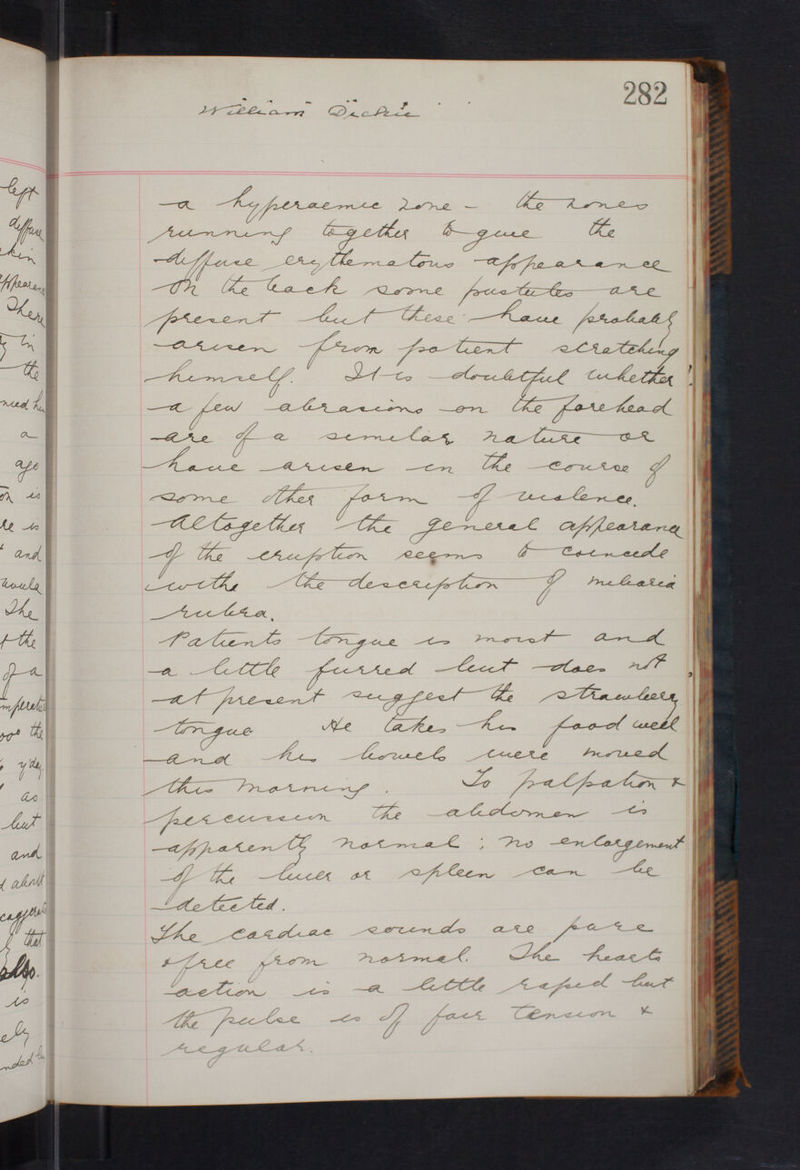 282
William Dickie
a hyperaemic zone - the zones
running together to give the
diffuse erythematous appearance
On the back some pustules are
present but these have probably
arisen from patient scratching
himself. It is doubtful whether
a few abrasions on the forehead
are of a similar nature or
have arisen in the course of
some other form of violence.
Altogether the general appearance
of the eruption seems to coincide
withe the description of miliaria
rubra.
Patients tongue is moist and
a little furred but does not
at present suggest the strawberry
tongue He takes his food well
and his bowels were moved
this morning. To palpation &
percussion the abdomen is
apparently normal; no enlargement
of the liver or spleen can be
detected.
The cardiac sounds are pure
& free from normal. The hearts
action is a little rapid but
the pulse is of fair tension &
regular.
left
There
in
the
a
ago
is
re is
and
uvula
The
the
of a
the
as
but
and
that
also.
is